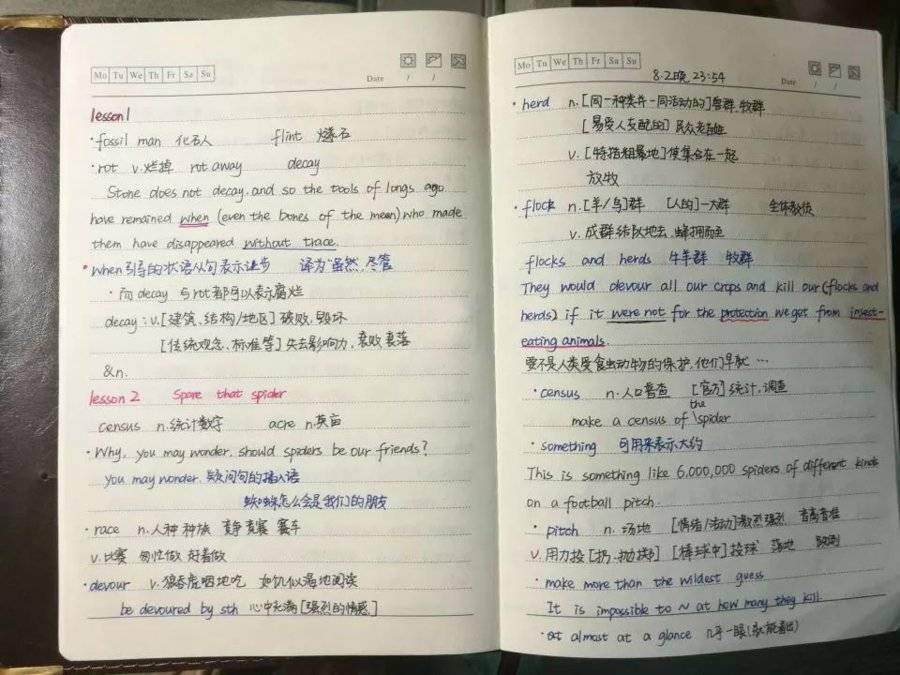 Mo Tu We Th Fr Sa Su
Date / /
lesson 1
·fossil man 化石人 flint 燧石
·rot v.烂掉 rot away decay
Stone does not decay, and so the tools of longs ago
have remained when (even the bones of the mean) who made
them have disappeared without trace.
·when引导的状语从句表示让步 译为"虽然,尽管
·而decay 与rot都可以表示腐烂
decay: v.[建筑、结构/地区] 破败,毁坏
[传统观念、标准等] 失去影响力,衰败 衰落
&n.
lesson 2 Spare that spider
census n.统计数字 acre n.英亩
·Why, you may wonder, should spiders be our friends?
you may wonder. 疑问句的插入语
蜘蛛怎么会是我们的朋友
·race n.人种 种族 竞争 竞赛 赛车
v.比赛 匆忙做 赶着做
·devour v.狼吞虎咽地吃 如饥似渴地阅读
be devoured by sth 心中充满[强烈的情感]
Mo Tu We Th Fr Sa Su
8.2晚 23:54
Date / /
·herd n.[同一种类并一同活动的]兽群,牧群
[易受人支配的] 民众 老百姓
v.[特指粗暴地]使集合在一起
放牧
·flock n.[羊/鸟]群 [人的]一大群 全体教徒
v.成群结队地去,蜂拥而至
flocks and herds 牛羊群 牧群
They would devour all our crops and kill our (flocks and
herds) if it were not for the protection we get from insect-
eating animals.
要不是人类受食虫动物的保护,他们早就 …
·census n.人口普查 [官方]统计,调查
make a census of the spider
·something 可用来表示大约
This is something like 6,000,000 spiders of different kinds
on a football pitch.
·pitch n.场地 [情绪/活动]激烈强烈 音高音准
v.用力投[扔、抛、掷] [棒球中]投球 落地
·make more than the wildest guess
It is impossible to ~ at how many they kill.
·at almost at a glance 几乎一眼(就能看出)